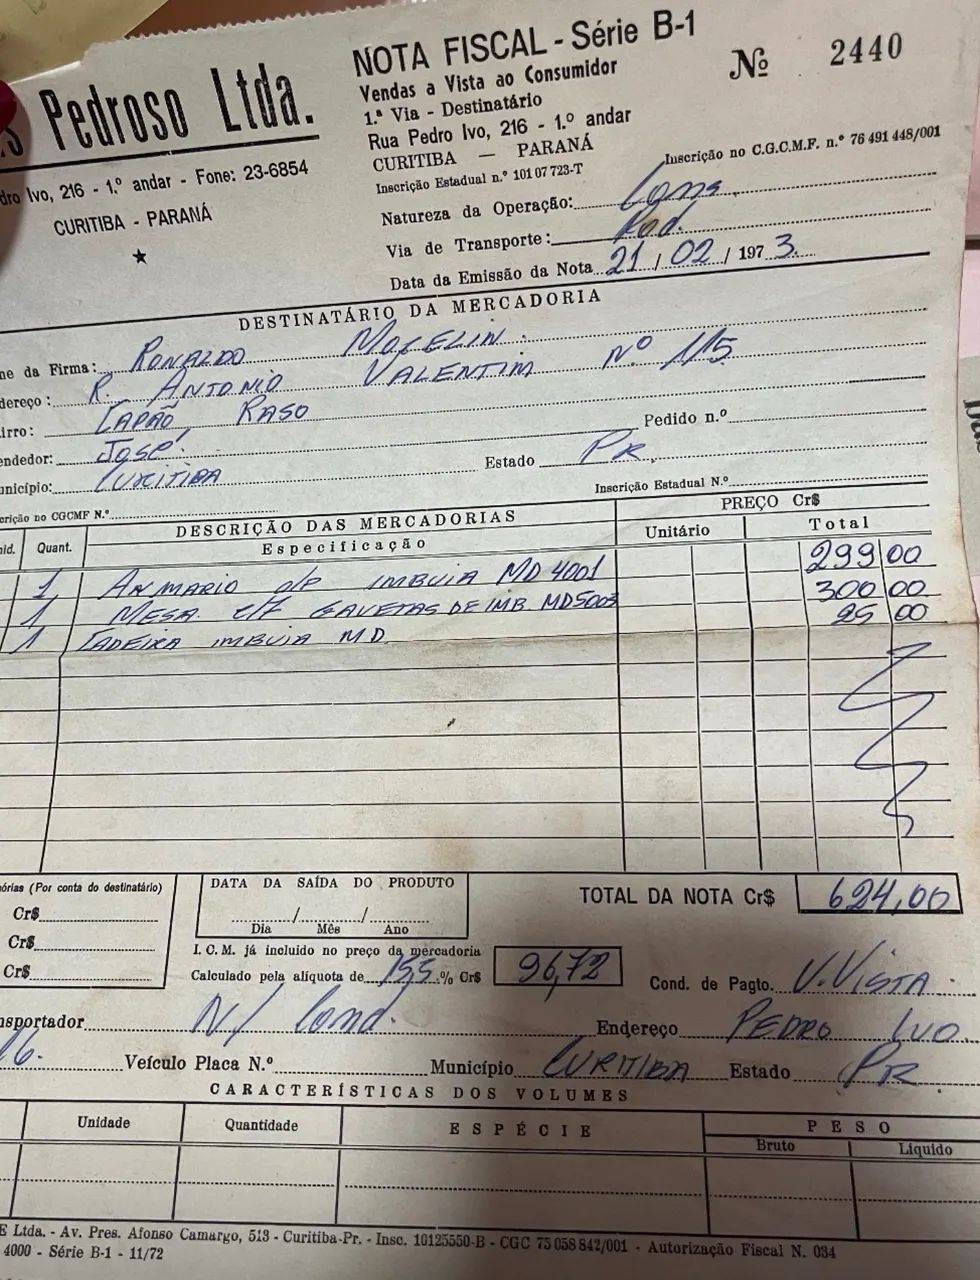 s Pedroso Ltda.
dro Ivo, 216 - 1.º andar - Fone: 23-6854
CURITIBA - PARANÁ
NOTA FISCAL - Série B-1
Vendas a Vista ao Consumidor
1.ª Via - Destinatário
Rua Pedro Ivo, 216 - 1.º andar
CURITIBA — PARANÁ
Inscrição Estadual n.º 101 07 723-T
Nº 2440
Inscrição no C.G.C.M.F. n.º 76 491 448/001
Natureza da Operação: Cons
Via de Transporte: Rod.
Data da Emissão da Nota 21/02/1973.
DESTINATÁRIO DA MERCADORIA
me da Firma: RONALDO MOCELIN.
dereço: R. ANTONIO VALENTIM Nº 115
irro: CAPÃO RASO
Pedido n.º
endedor: José
Estado PR
unicípio: CURITIBA
crição no CGCMF N.º
Inscrição Estadual N.º
DESCRIÇÃO DAS MERCADORIAS
PREÇO Cr$
nid. Quant. Especificação Unitário Total
1 ARMARIO d/P IMBUIA MD 4001 299 00
1 MESA c/7 GAVETAS DE IMB. MD5003 300 00
1 CADEIRA IMBUIA MD 25 00
órias (Por conta do destinatário)
Cr$
Cr$
Cr$
DATA DA SAÍDA DO PRODUTO
/ /
Dia Mês Ano
TOTAL DA NOTA Cr$ 624,00
I. C. M. já incluido no preço da mercadoria
Calculado pela alíquota de 15,5 % Cr$ 96,72
Cond. de Pagto. V. VISTA
nsportador N/ Cond.
Endereço PEDRO IVO
16.
Veículo Placa N.º
Município CURITIBA Estado PR
CARACTERÍSTICAS DOS VOLUMES
Unidade Quantidade ESPÉCIE PESO
Bruto Liquido
E Ltda. - Av. Pres. Afonso Camargo, 513 - Curitiba-Pr. - Insc. 10125550-B - CGC 75 058 842/001 - Autorização Fiscal N. 034
4000 - Série B-1 - 11/72